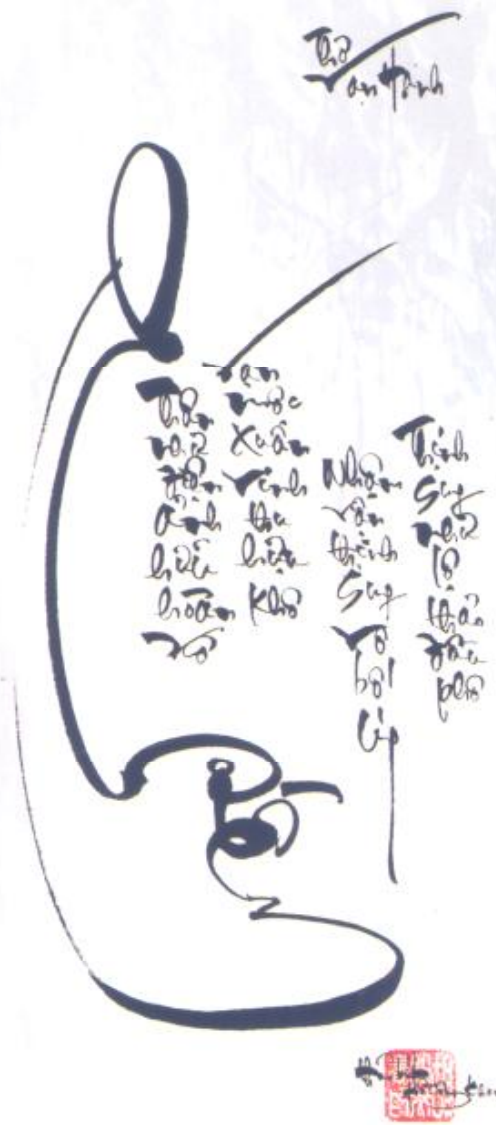 Thơ
Vạn Hạnh
Thân như điện ảnh hữu hoàn vô
Vạn mộc Xuân Vinh thu hựu Khô
Nhậm vận thịnh Suy Vô
Thịnh Suy như lộ thảo đầu phô